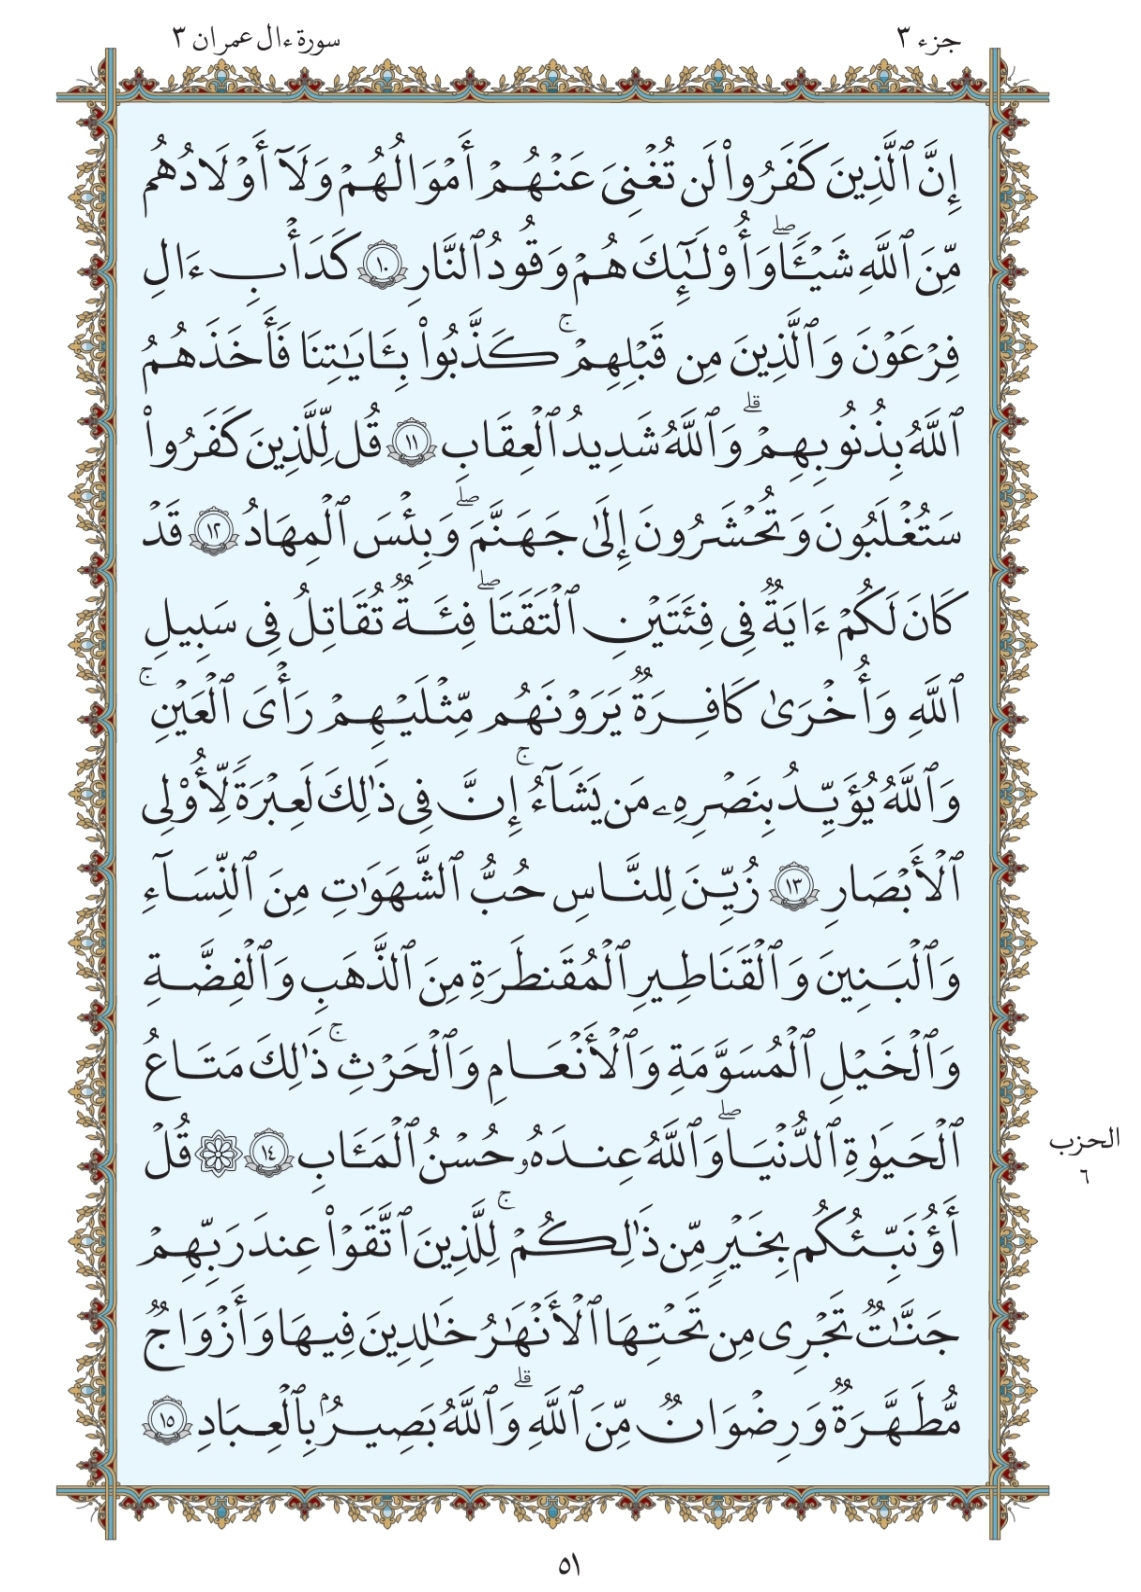 جزء ٣
سورة ءال عمران ٣
إِنَّ ٱلَّذِينَ كَفَرُوا۟ لَن تُغْنِىَ عَنْهُمْ أَمْوَٰلُهُمْ وَلَآ أَوْلَـٰدُهُم
مِّنَ ٱللَّهِ شَيْـًٔا ۖ وَأُو۟لَـٰٓئِكَ هُمْ وَقُودُ ٱلنَّارِ ١٠ كَدَأْبِ ءَالِ
فِرْعَوْنَ وَٱلَّذِينَ مِن قَبْلِهِمْ ۚ كَذَّبُوا۟ بِـَٔايَـٰتِنَا فَأَخَذَهُمُ
ٱللَّهُ بِذُنُوبِهِمْ ۗ وَٱللَّهُ شَدِيدُ ٱلْعِقَابِ ١١ قُل لِّلَّذِينَ كَفَرُوا۟
سَتُغْلَبُونَ وَتُحْشَرُونَ إِلَىٰ جَهَنَّمَ ۖ وَبِئْسَ ٱلْمِهَادُ ١٢ قَدْ
كَانَ لَكُمْ ءَايَةٌ فِى فِئَتَيْنِ ٱلْتَقَتَا ۖ فِئَةٌ تُقَـٰتِلُ فِى سَبِيلِ
ٱللَّهِ وَأُخْرَىٰ كَافِرَةٌ يَرَوْنَهُم مِّثْلَيْهِمْ رَأْىَ ٱلْعَيْنِ ۚ
وَٱللَّهُ يُؤَيِّدُ بِنَصْرِهِۦ مَن يَشَآءُ ۚ إِنَّ فِى ذَٰلِكَ لَعِبْرَةً لِّأُو۟لِى
ٱلْأَبْصَـٰرِ ١٣ زُيِّنَ لِلنَّاسِ حُبُّ ٱلشَّهَوَٰتِ مِنَ ٱلنِّسَآءِ
وَٱلْبَنِينَ وَٱلْقَنَـٰطِيرِ ٱلْمُقَنطَرَةِ مِنَ ٱلذَّهَبِ وَٱلْفِضَّةِ
وَٱلْخَيْلِ ٱلْمُسَوَّمَةِ وَٱلْأَنْعَـٰمِ وَٱلْحَرْثِ ۚ ذَٰلِكَ مَتَـٰعُ
ٱلْحَيَوٰةِ ٱلدُّنْيَا ۖ وَٱللَّهُ عِندَهُۥ حُسْنُ ٱلْمَـَٔابِ ١٤ ۞ قُلْ
الحزب
٦
أَؤُنَبِّئُكُم بِخَيْرٍ مِّن ذَٰلِكُمْ ۚ لِلَّذِينَ ٱتَّقَوْا۟ عِندَ رَبِّهِمْ
جَنَّـٰتٌ تَجْرِى مِن تَحْتِهَا ٱلْأَنْهَـٰرُ خَـٰلِدِينَ فِيهَا وَأَزْوَٰجٌ
مُّطَهَّرَةٌ وَرِضْوَٰنٌ مِّنَ ٱللَّهِ ۗ وَٱللَّهُ بَصِيرٌۢ بِٱلْعِبَادِ ١٥
٥١